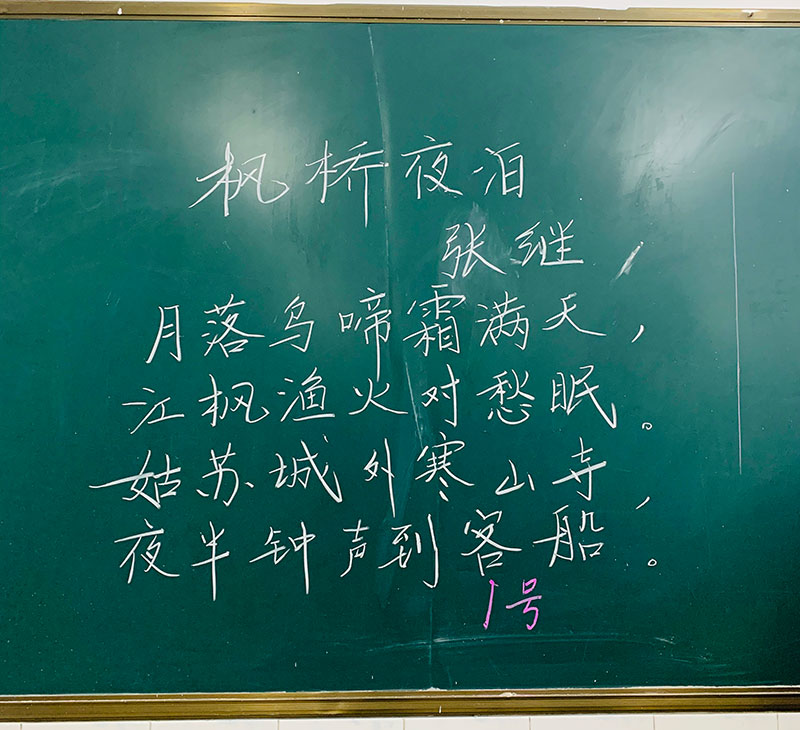 枫桥夜泊
张继
月落乌啼霜满天，
江枫渔火对愁眠。
姑苏城外寒山寺，
夜半钟声到客船。
1号